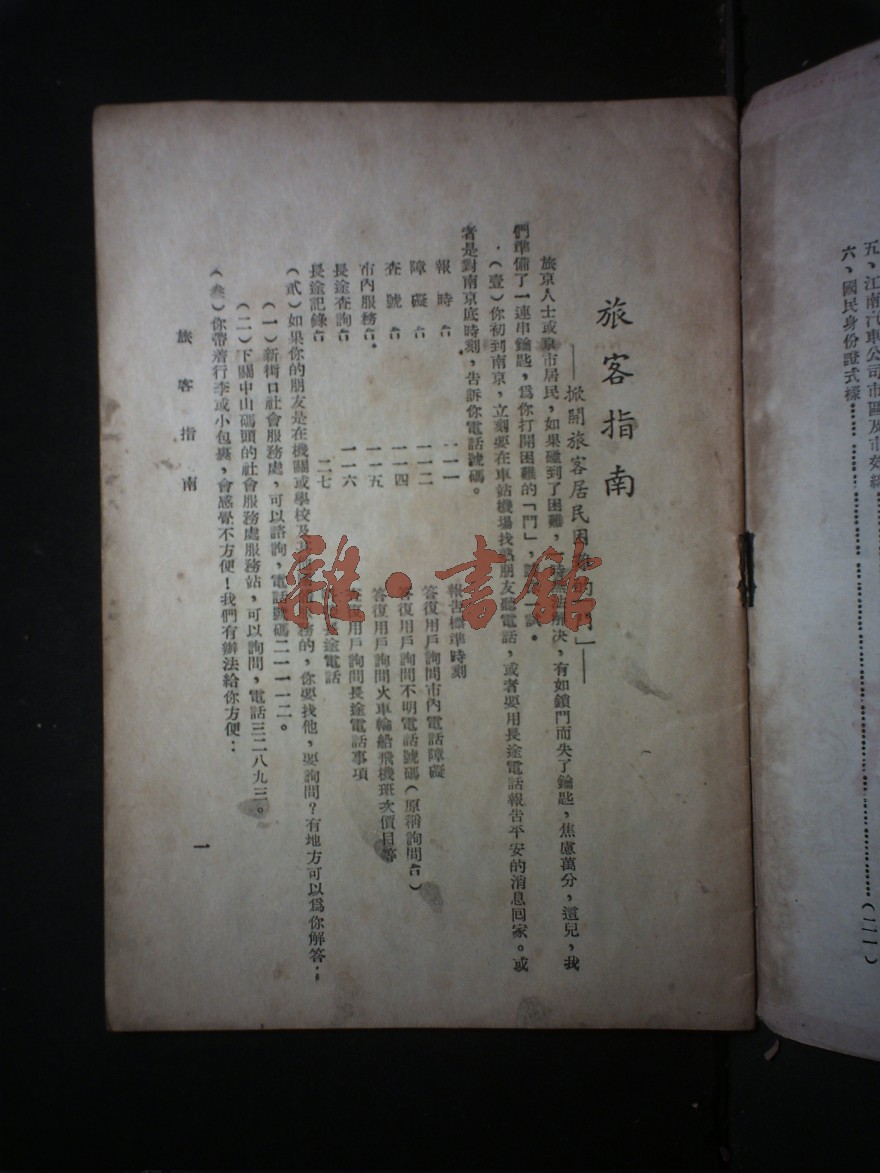 五、江南汽車公司市區及市郊線
六、國民身份證式樣………………………(二一)
旅客指南
——掀開旅客居民困難的「門」——
旅京人士或京市居民,如果碰到了困難,解決,有如鎖門而失了鑰匙,焦慮萬分,這兒,我
們準備了一連串鑰匙,為你打開困難的「門」,
(壹)你初到南京,立刻要在車站機場找熟朋友聽電話,或者要用長途電話報告平安的消息回家。或
者是對南京底時刻,告訴你電話號碼。
報時台 一一一 報告標準時刻
障礙台 一一二 答復用戶詢問市內電話障礙
查號台 一一四 答復用戶詢問不明電話號碼(原稱詢問台)
市內服務台 一一五 答復用戶詢問火車輪船飛機班次價目等
長途查詢台 一一六 答復用戶詢問長途電話事項
長途記錄台 一七 長途電話
(貳)如果你的朋友是在機關或學校及其服務的,你要找他,要詢問?有地方可以為你解答:
(一)新街口社會服務處,可以諮詢,電話號碼二一一一二。
(二)下關中山碼頭的社會服務處服務站,可以詢問,電話三二八九三。
(叁)你帶着行李或小包裹,會感覺不方便!我們有辦法給你方便:
旅客指南
一
雜·書館